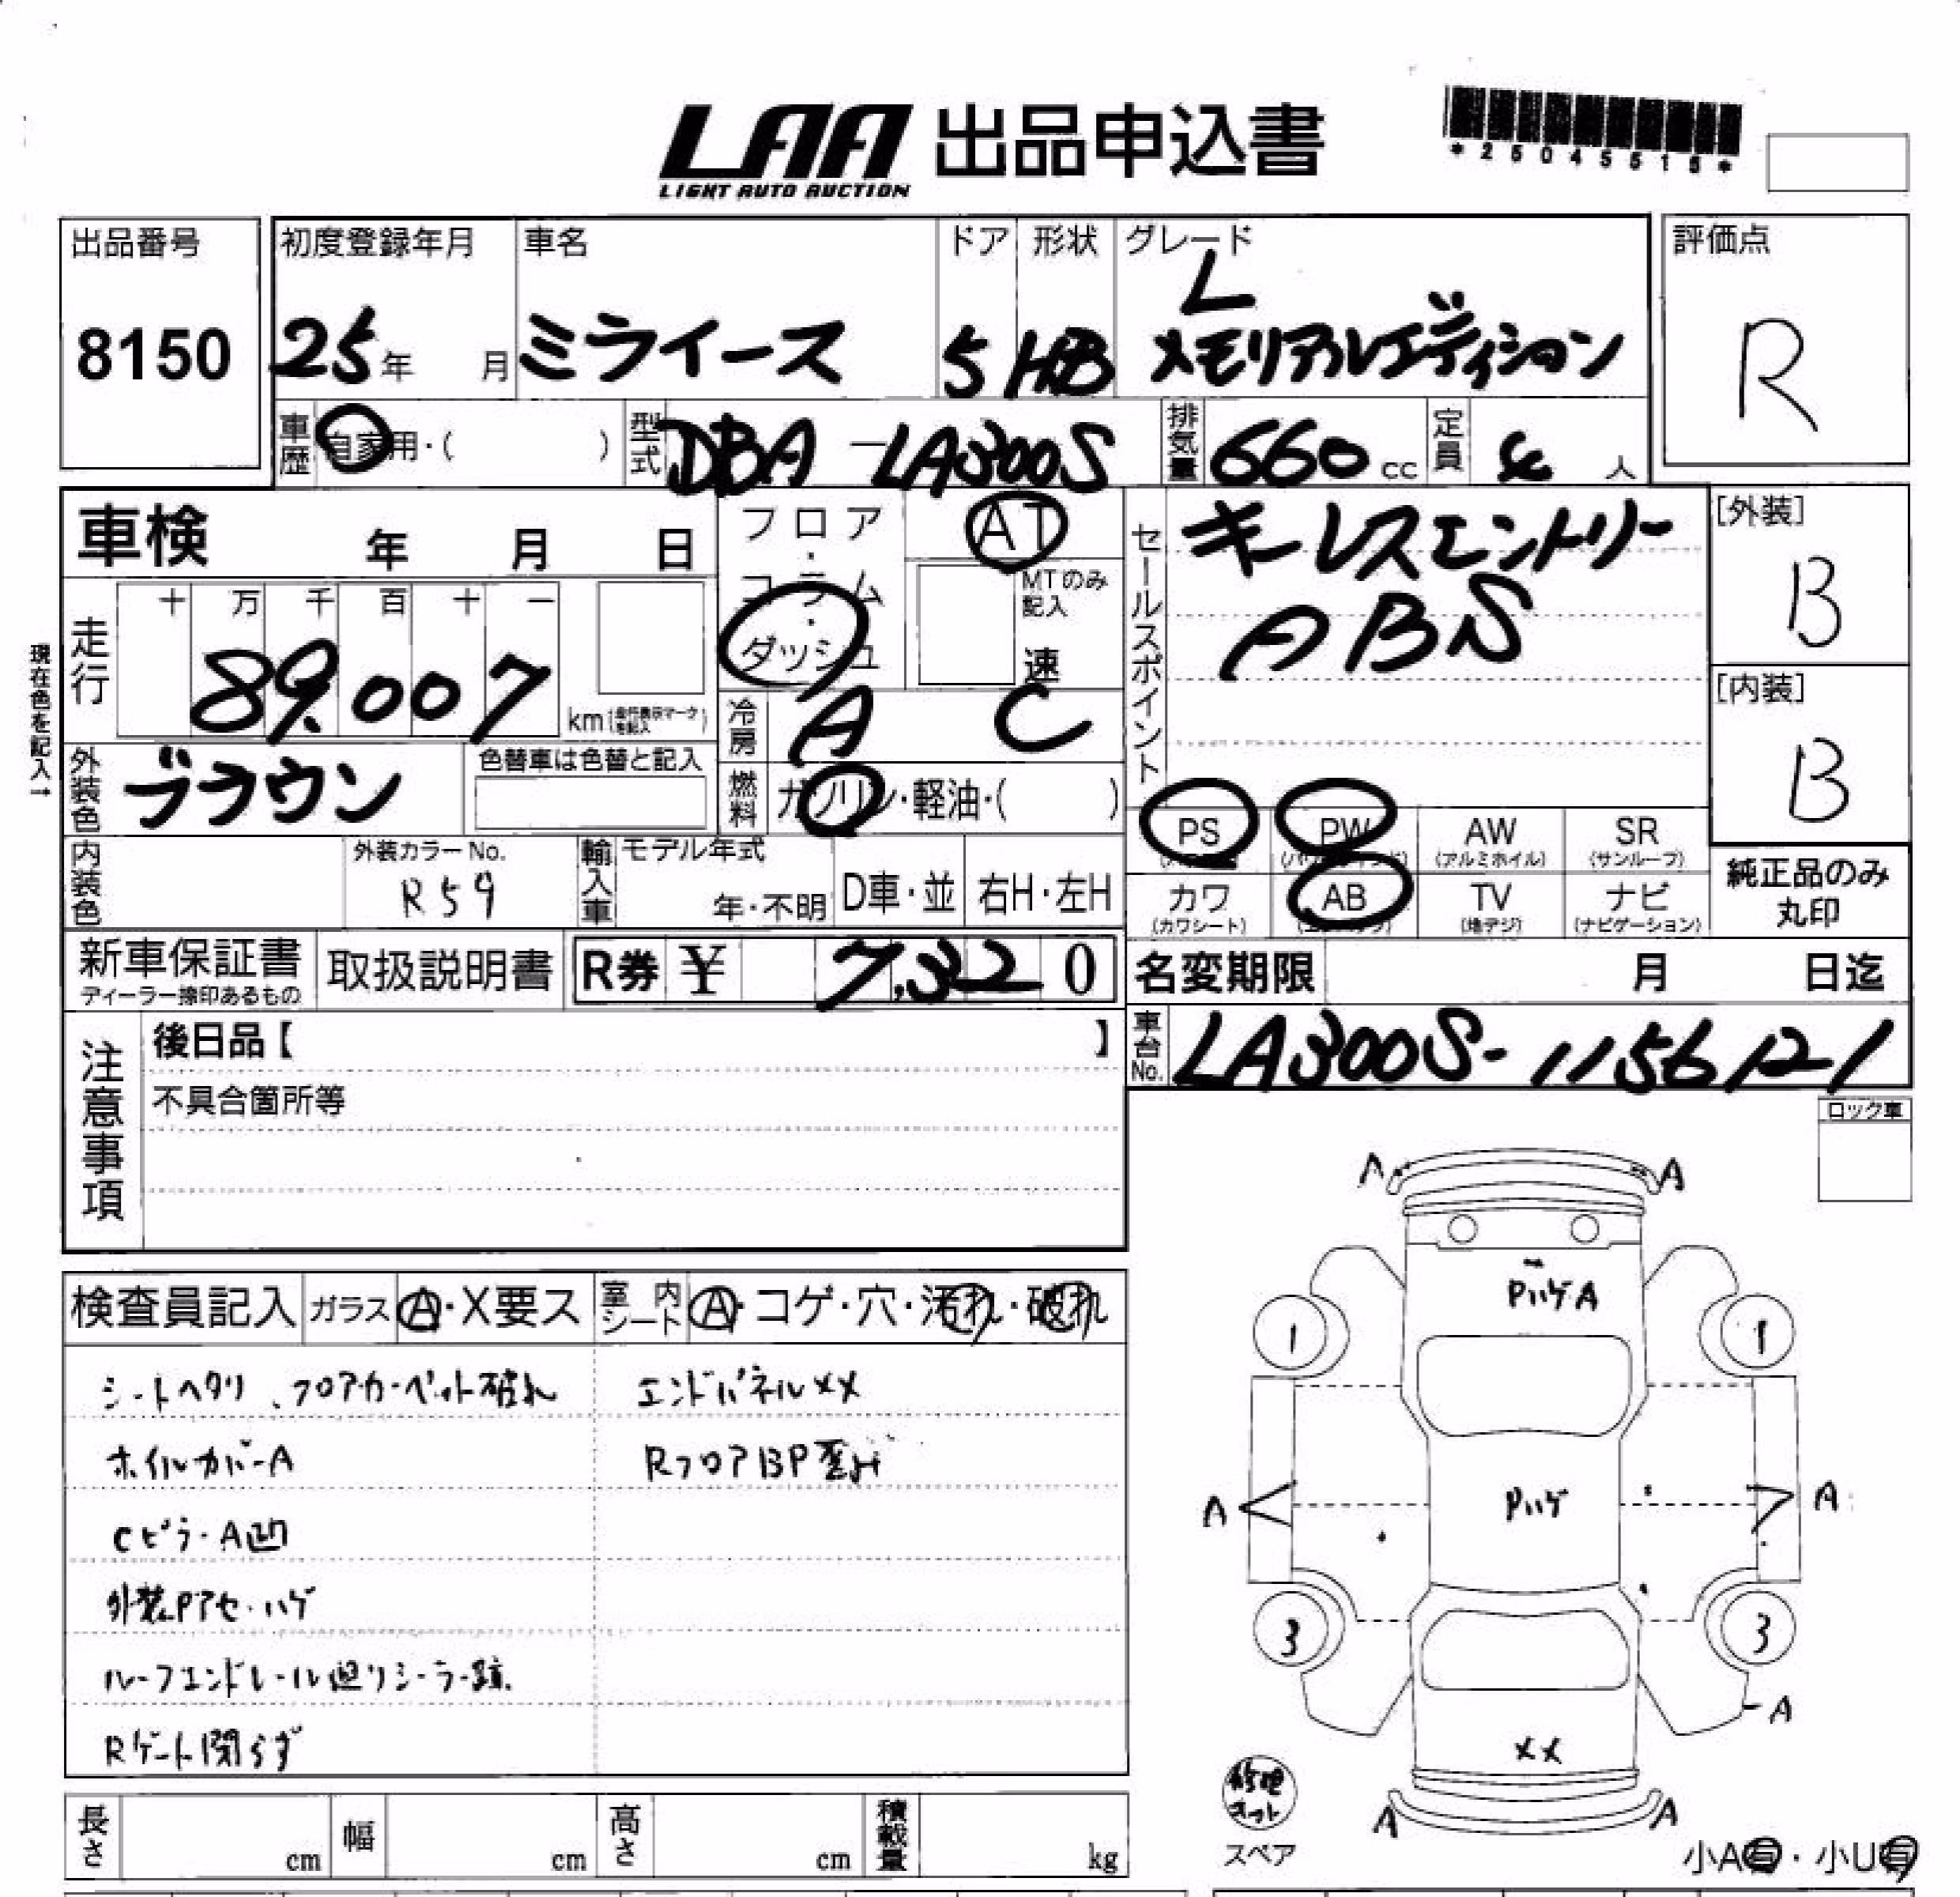 LAA 出品申込書
LIGHT AUTO AUCTION
*25045515*
出品番号
8150
初度登録年月
25年 月
車名
ミライース
ドア
5
形状
HB
グレード
L
メモリアルエディション
評価点
R
車歴
自家用・( )
型式
DBA-LA300S
排気量
660 cc
定員
4 人
車検 年 月 日
フロア・コラム・ダッシュ
AT
MTのみ記入
速
セールスポイント
キーレスエントリー
ABS
[外装]
B
[内装]
B
現在色を記入→
走行
十 万 千 百 十 一
89,007
km
冷房
A C
外装色
ブラウン
色替車は色替と記入
燃料
ガソリン・軽油・( )
PS
PW
AW
(アルミホイル)
SR
(サンルーフ)
カワ
(カワシート)
AB
TV
(地デジ)
ナビ
(ナビゲーション)
純正品のみ
丸印
内装色
外装カラーNo.
R59
輸入車
モデル年式
年・不明
D車・並
右H・左H
新車保証書
ディーラー捺印あるもの
取扱説明書
R券 ¥ 7,320
名変期限 月 日迄
車台No.
LA300S-1156121
注意事項
後日品【 】
不具合箇所等
ロック車
検査員記入
ガラス
A・X要ス
室内
シート
A・コゲ・穴・汚れ・破れ
シートヘタリ、フロアカーペット破れ
ホイルカバーA
CピラーA凹
外装Pアセ・ハゲ
ルーフエンドレール廻りシーラー跡
Rゲート閉らず
エンドパネルXX
RフロアBP歪み
A A
PハゲA
1 1
A Pハゲ A
3 3
A
XX
A A
修理キット
スペア
小A有・小U有
長さ cm
幅 cm
高さ cm
積載量 kg